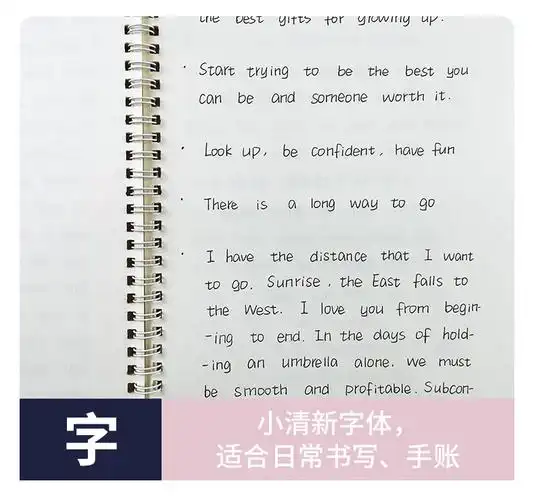 the best gifts for growing up.
· Start trying to be the best you
can be and someone worth it.
· Look up, be confident, have fun
· There is a long way to go
· I have the distance that I want
to go. Sunrise, the East falls to
the West. I love you from begin-
-ing to end. In the days of hold-
-ing an umbrella alone, we must
be smooth and profitable. Subcon-
字
小清新字体，
适合日常书写、手账